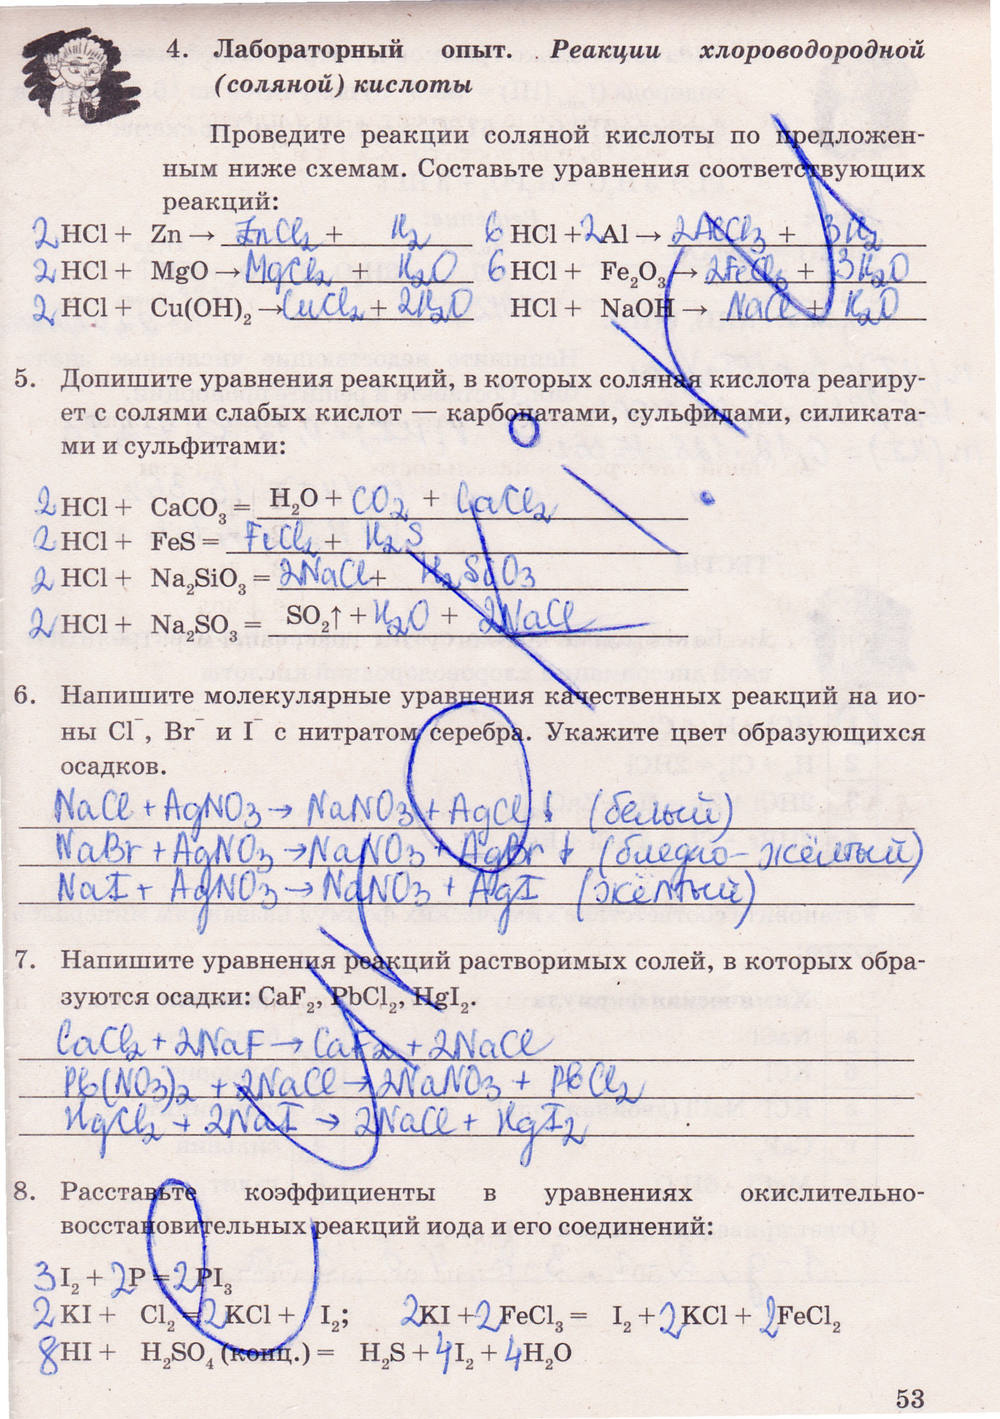 4. Лабораторный опыт. Реакции хлороводородной
(соляной) кислоты
Проведите реакции соляной кислоты по предложен-
ным ниже схемам. Составьте уравнения соответствующих
реакций:
2HCl + Zn → ZnCl₂ + H₂ 6 HCl + 2Al → 2AlCl₃ + 3H₂
2HCl + MgO → MgCl₂ + H₂O 6 HCl + Fe₂O₃ → 2FeCl₃ + 3H₂O
2HCl + Cu(OH)₂ → CuCl₂ + 2H₂O HCl + NaOH → NaCl + H₂O
5. Допишите уравнения реакций, в которых соляная кислота реагиру-
ет с солями слабых кислот — карбонатами, сульфидами, силиката-
ми и сульфитами:
2HCl + CaCO₃ = H₂O + CO₂ + CaCl₂
2HCl + FeS = FeCl₂ + H₂S
2HCl + Na₂SiO₃ = 2NaCl + H₂SiO₃
2HCl + Na₂SO₃ = SO₂↑ + H₂O + 2NaCl
6. Напишите молекулярные уравнения качественных реакций на ио-
ны Cl⁻, Br⁻ и I⁻ с нитратом серебра. Укажите цвет образующихся
осадков.
NaCl + AgNO₃ → NaNO₃ + AgCl↓ (белый)
NaBr + AgNO₃ → NaNO₃ + AgBr↓ (бледно-жёлтый)
NaI + AgNO₃ → NaNO₃ + AgI (жёлтый)
7. Напишите уравнения реакций растворимых солей, в которых обра-
зуются осадки: CaF₂, PbCl₂, HgI₂.
CaCl₂ + 2NaF → CaF₂ + 2NaCl
Pb(NO₃)₂ + 2NaCl → 2NaNO₃ + PbCl₂
HgCl₂ + 2NaI → 2NaCl + HgI₂
8. Расставьте коэффициенты в уравнениях окислительно-
восстановительных реакций иода и его соединений:
3I₂ + 2P = 2PI₃
2KI + Cl₂ = 2KCl + I₂; 2KI + 2FeCl₃ = I₂ + 2KCl + 2FeCl₂
8HI + H₂SO₄ (конц.) = H₂S + 4I₂ + 4H₂O
53